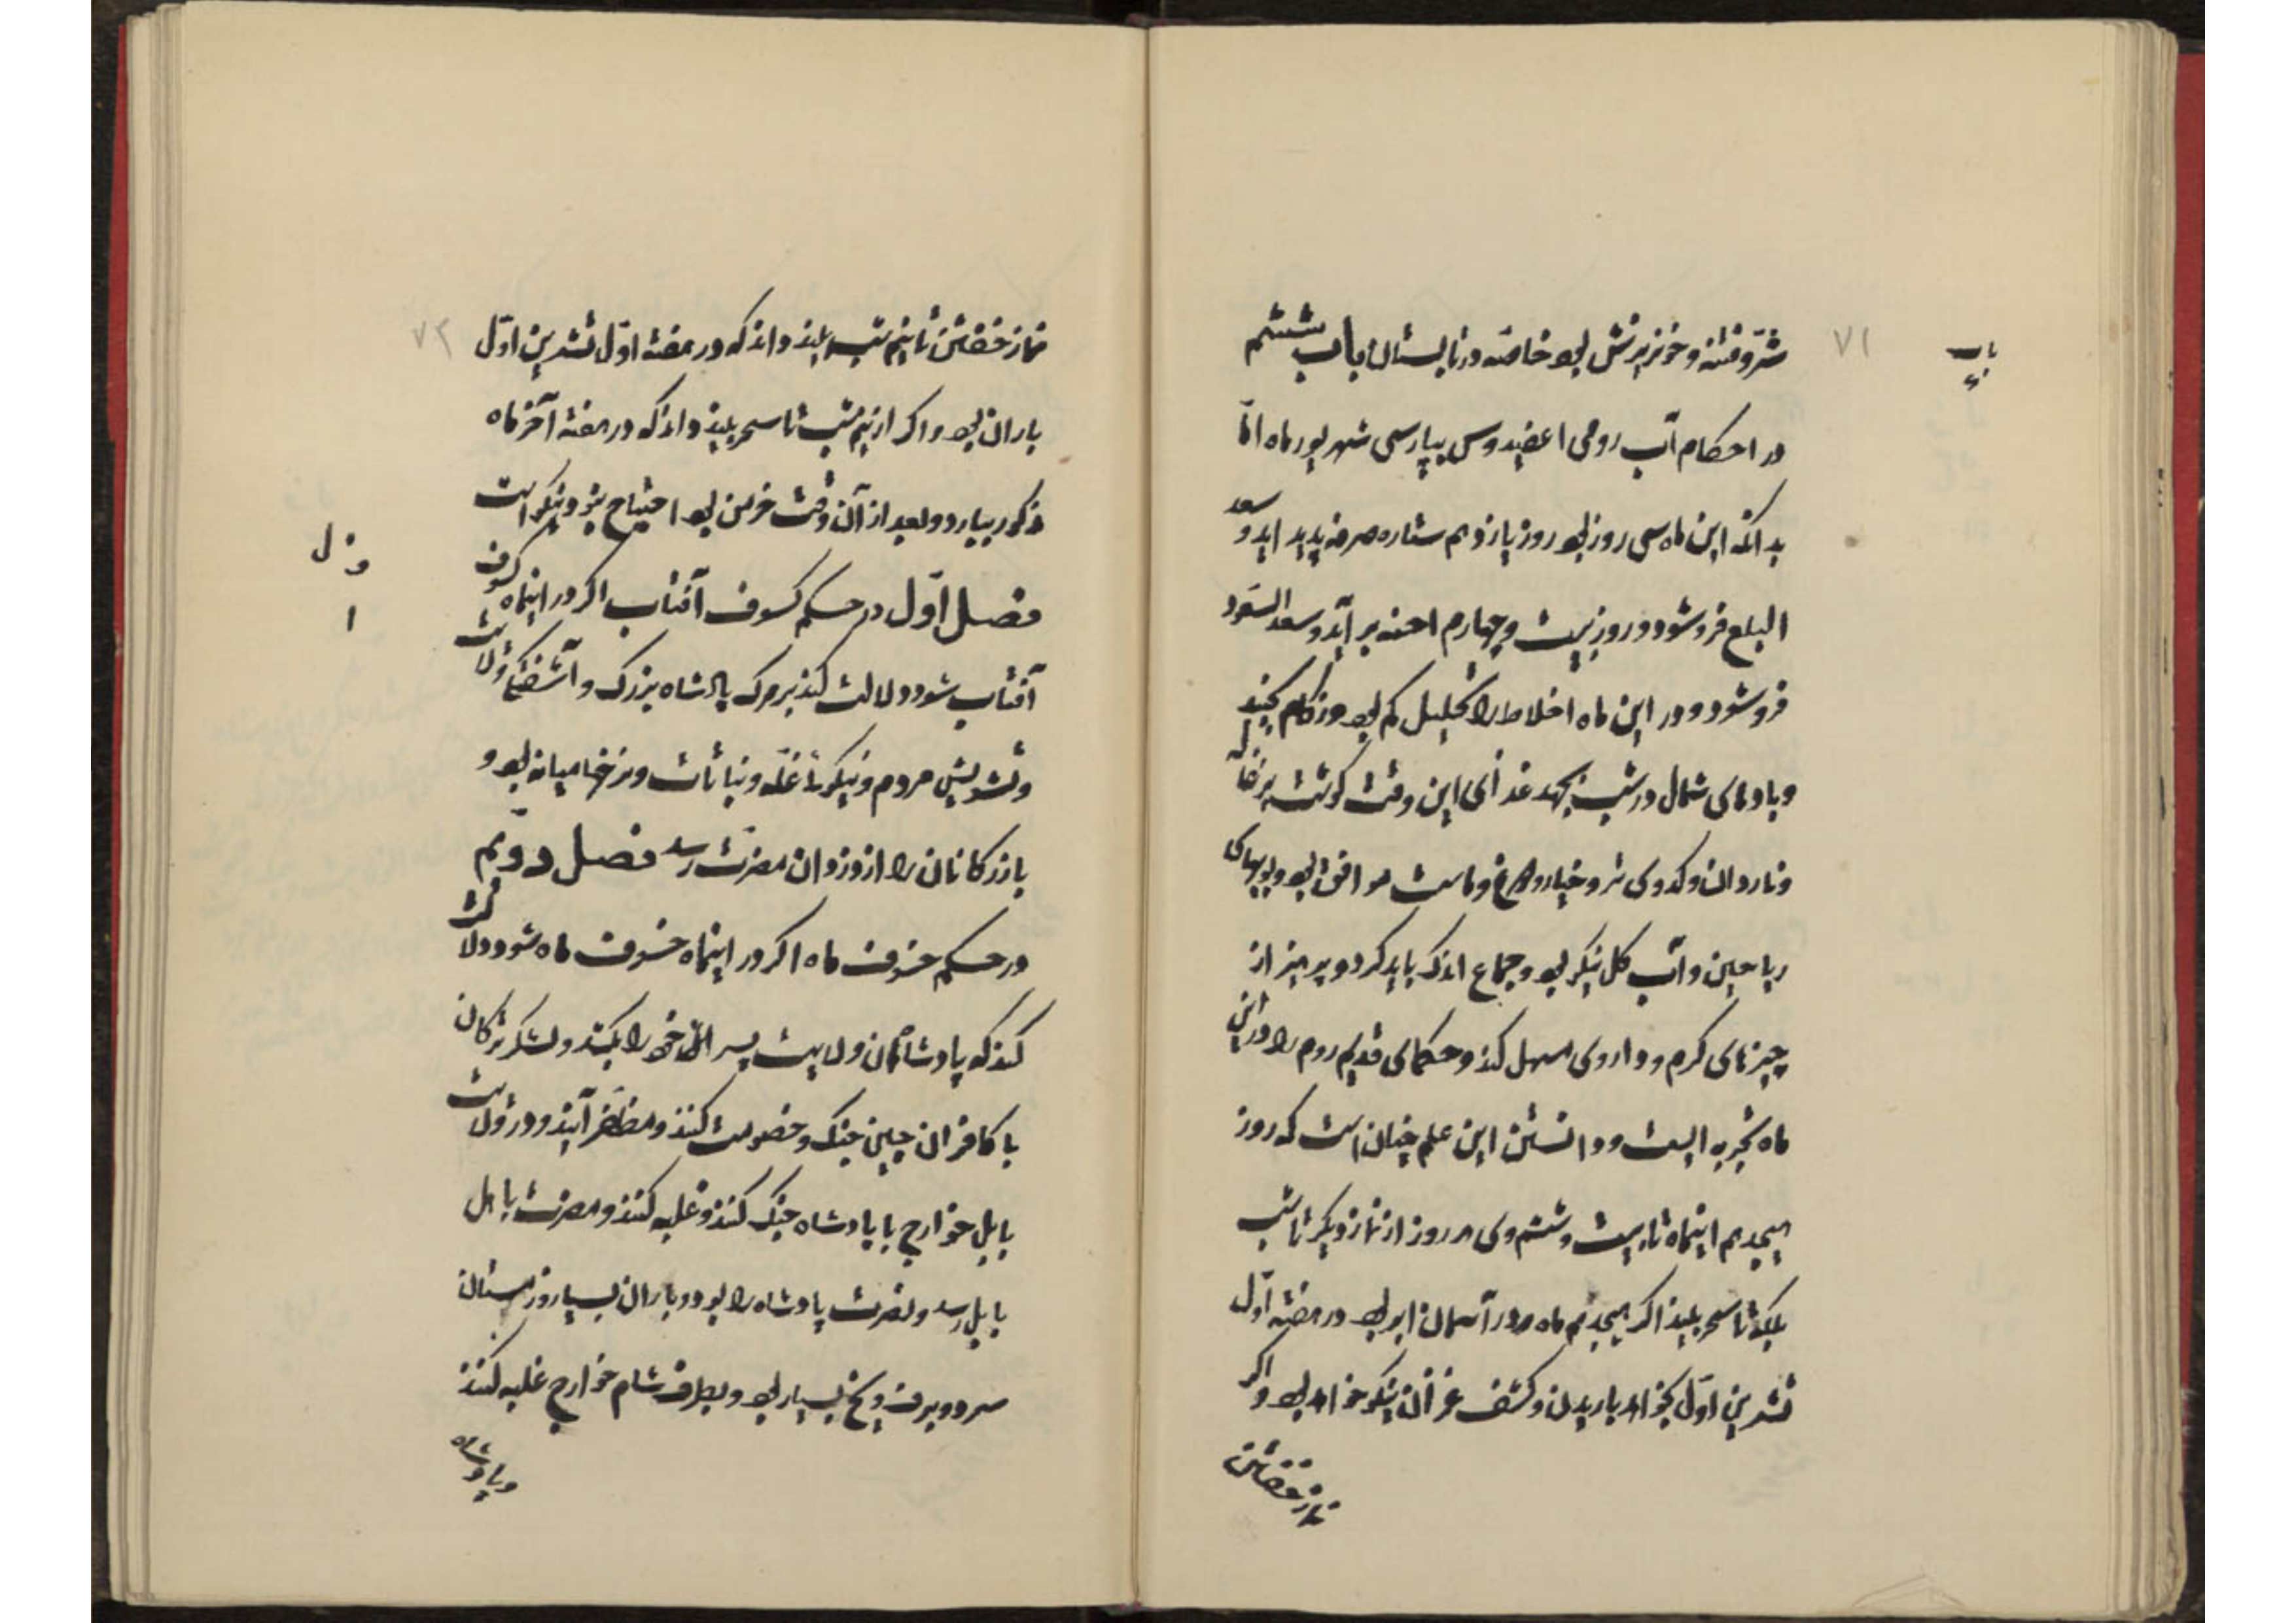 باب
۷۱
شر و فتنه و خونریزش بود خاصه در تابستان باب ششم
در احکام آب رومی پپارسی شهریور ماه اما
بدانکه این ماه سی روز بود روز یازدهم ستاره صرفه پدید اید و سعد
البلع فرو شود و روز بیست و چهارم برآید و سعد السعود
فرو شود و در این ماه اخلاط را تحلیل کم بود و زکام بجنبد
و بادهای شمال در شب بجهد غذای این وقت کوشت بزغاله
و ناردان و کدوی تر و خیار و مرغ و ماست موافق بود و بویهای
ریاحین و آب کل نیکو بود و جماع اندک باید کرد و پرهیز از
چیزهای کرم و داروی مسهل کند و حکمای قدیم روم را در این
ماه تجربه ایست و دانستن این علم چنان است که روز
هیجدهم اینماه تا بیست و ششم وی هر روز از نماز دیکر تا شب
بلکه تا سحر ببیند اکر هیجدهم ماه در آسمان ابر بود در هفته اول
تشرین اول بخواهد باریدن و کشف نیکو خواهد بود و اکر
نماز خفتن
۷۲
نماز خفتن تا نیم شب ببیند داند که در هفته اول تشرین اول
باران بود و اکر از نیم شب تا سحر ببیند داند که در هفته آخر ماه
مذکور ببارد و بعد از آن وقت خرمن بود احتیاج نبود و نیکو است
فصل اول در حکم کسوف آفتاب اکر در اینماه کسوف
آفتاب شود دلالت کند بر مرک پادشاه بزرک و آشفتکی ولایت
و تشویش مردم و نیکویی غله و نباتات و نرخها میانه بود و
بازرکانان را از دزدان مضرت رسد فصل دویم
در حکم خسوف ماه اکر در اینماه خسوف ماه شود دلالت
کند که پادشاه آن ولایت پسر خود را بکشد و لشکر ترکان
با کافران چین جنک و خصومت کنند و مظفر آیند و در ولایت
بابل خوارج با پادشاه جنک کنند و غلبه کنند و مضرت باهل
بابل رسد و نصرت پادشاه را بود و باران بسیار و زمستان
سرد و برف و یخ بسیار بود و بطرف شام خوارج غلبه کنند
و پادشاه
ف ل
۱